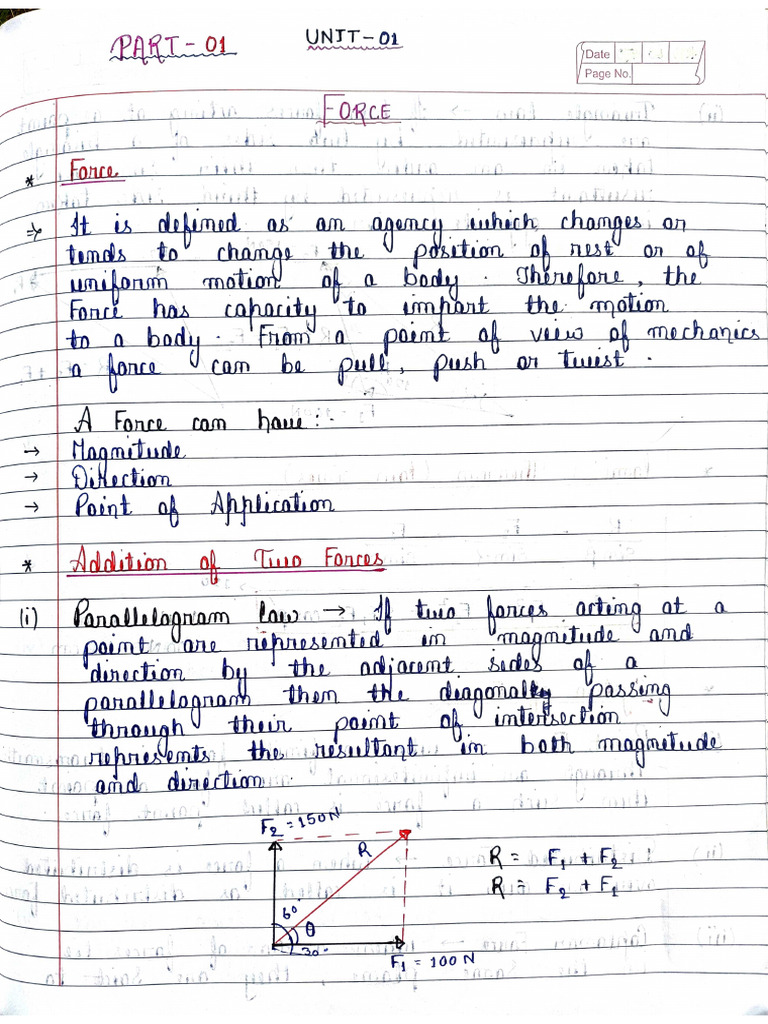 PART-01 UNIT-01
Date
Page No.
FORCE
* Force
⇒ It is defined as an agency which changes or
tends to change the position of rest or of
uniform motion of a body. Therefore, the
Force has capacity to impart the motion
to a body. From a point of view of mechanics
a force can be pull, push or twist.
A Force can have:-
→ Magnitude
→ Direction
→ Point of Application
* Addition of Two Forces
(i) Parallelogram law → If two forces acting at a
point are represented in magnitude and
direction by the adjacent sides of a
parallelogram then the diagonally passing
through their point of intersection
represents the resultant in both magnitude
and direction.
F2 = 150N
R
R = F1 + F2
R = F2 + F1
60°
θ
30°
F1 = 100 N